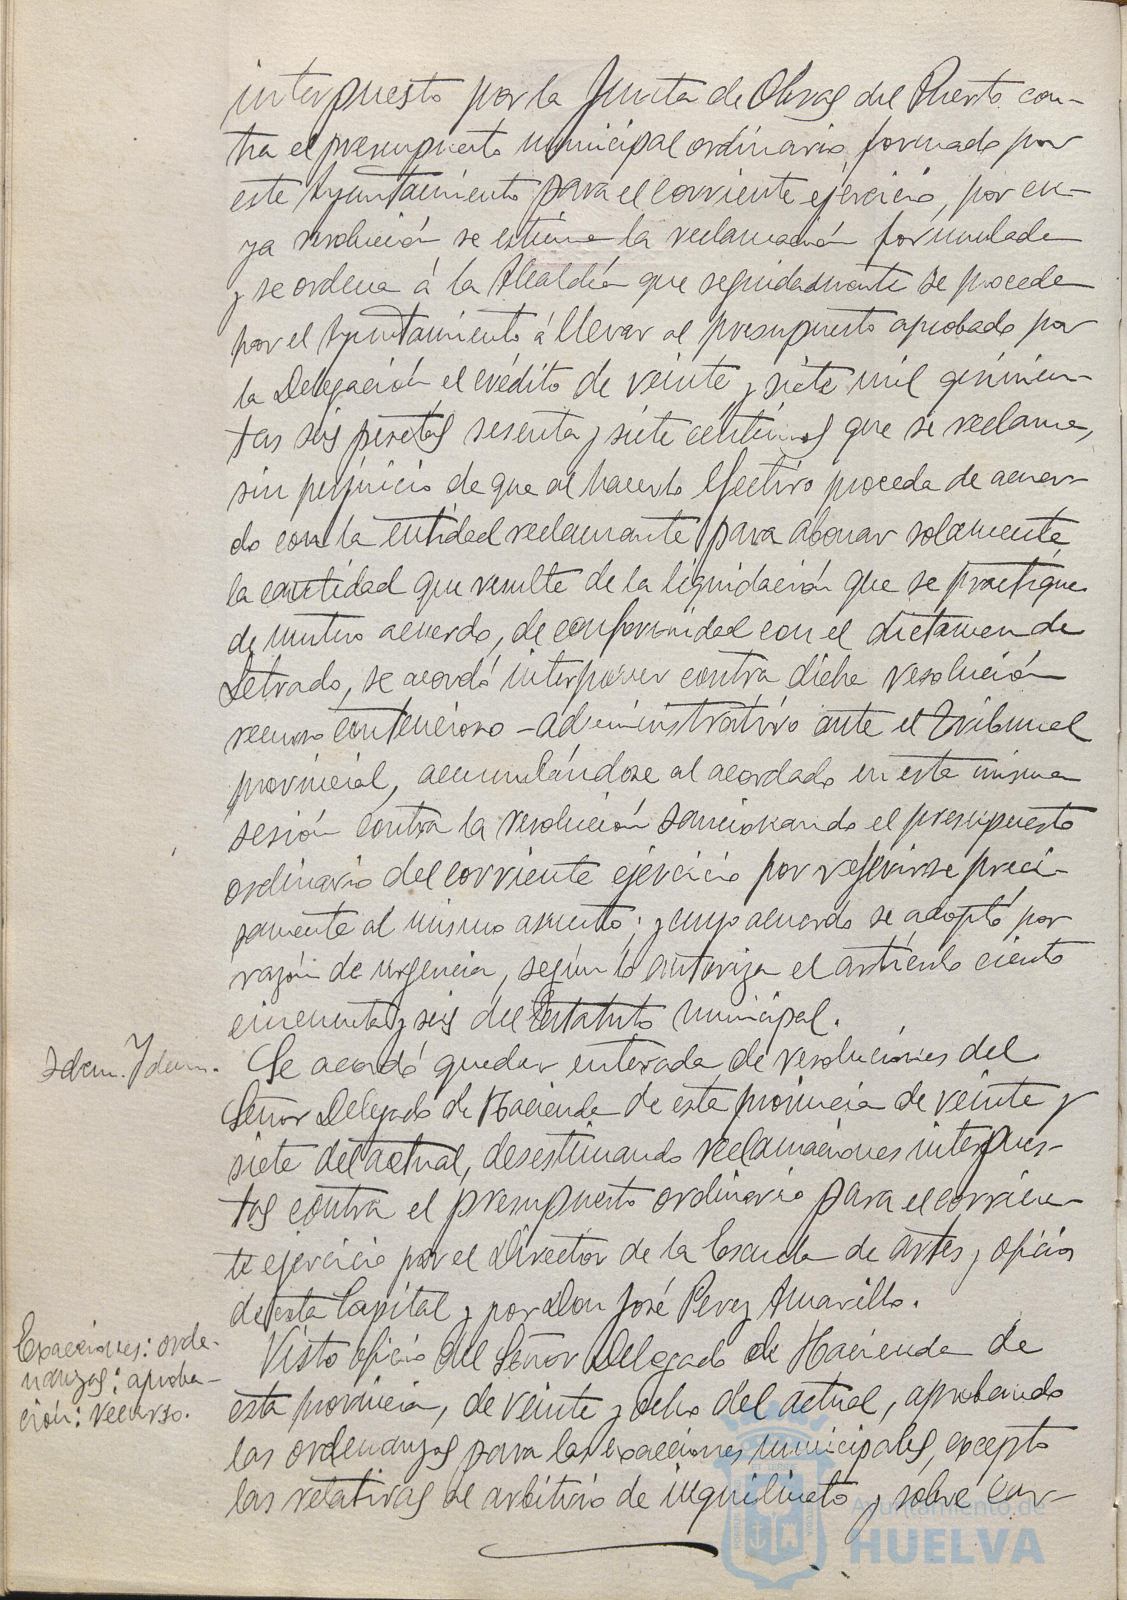 interpuesto por la Junta de Obras del Puerto con-
tra el presupuesto municipal ordinario, formado por
este Ayuntamiento para el corriente ejercicio, por cu-
ya resolución se estima la reclamación formulada
y se ordena á la Alcaldía que seguidamente se proceda
por el Ayuntamiento á llevar al presupuesto aprobado por
la Delegación el crédito de veinte y siete mil quinien-
tas seis pesetas sesenta y siete céntimos que se reclama,
sin perjuicio de que al hacerlo efectivo proceda de acuer-
do con la entidad reclamante para abonar solamente
la cantidad que resulte de la liquidación que se practique
de mutuo acuerdo, de conformidad con el dictamen de
Letrado, se acordó interponer contra dicha resolución
recurso contencioso-administrativo ante el Tribunal
provincial, acumulándose al acordado en esta misma
sesión contra la resolución sancionando el presupuesto
ordinario del corriente ejercicio por referirse preci-
samente al mismo asunto; y cuyo acuerdo se adoptó por
razón de urgencia, según lo autoriza el artículo ciento
cincuenta y seis del Estatuto municipal.
Idem. Idem.
Se acordó quedar enterada de resoluciones del
Señor Delegado de Hacienda de esta provincia de veinte y
siete del actual, desestimando reclamaciones interpues-
tas contra el presupuesto ordinario para el corrien-
te ejercicio por el Director de la Escuela de artes y oficios
de esta Capital y por Don José Perez Amarillo.
Exacciones: orde-
nanzas: aproba-
ción: recurso.
Visto oficio del Señor Delegado de Hacienda de
esta provincia, de veinte y ocho del actual, aprobando
las ordenanzas para las exacciones municipales, excepto
las relativas al arbitrio de inquilinato y sobre car-
Ayuntamiento de
HUELVA